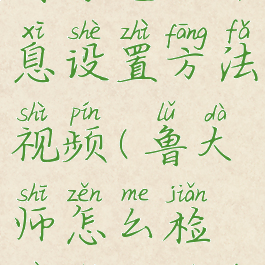 xī shè zhì fāng fǎ
息设置方法
shì pín lǔ dà
视频(鲁大
shī zěn me jiǎn
师怎么检